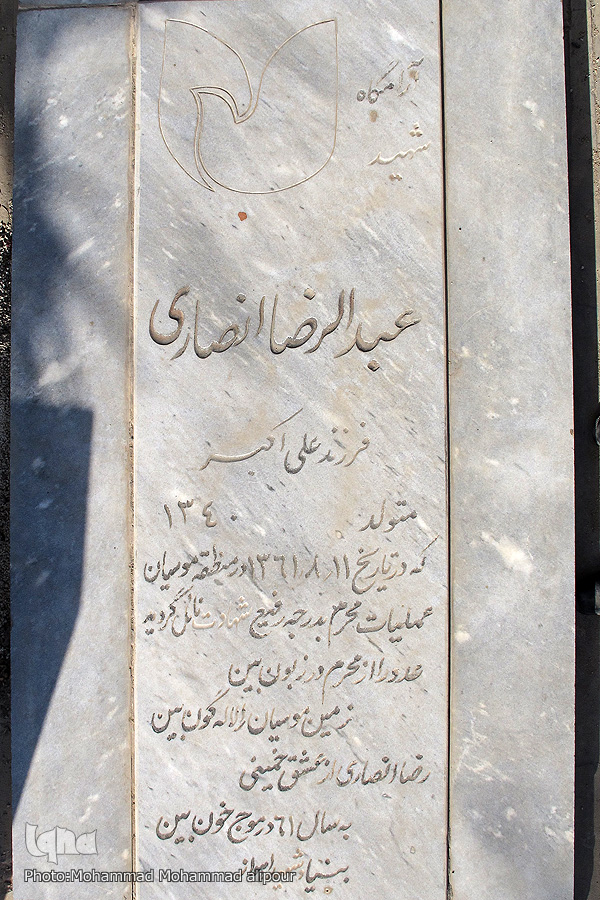 آرامگاه
شهید
عبدالرضا انصاری
فرزند علی اکبر
متولد ۱۳۴۰
که در تاریخ ۱۳۶۱٫۸٫۱۱ در منطقه موسیان
عملیات محرم بدرجه رفیع شهادت نائل گردید
عدد را از محرم در زبون بین
زمین موسیان لاله گون بین
رضا انصاری از عشق خمینی
به سال ۶۱ در موج خون بین
بنیاد شهید
iqna
Photo:Mohammad Mohammad alipour